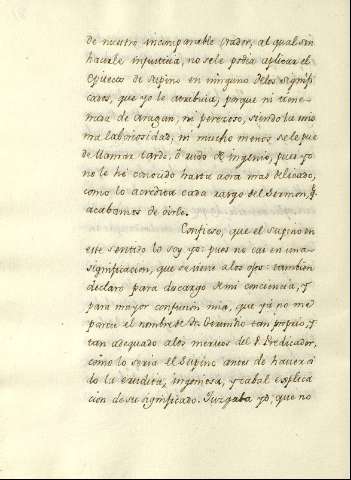 de nuestro incomparable Orador, al qual sin
hacerle injusticia, no se le podia aplicar el
epiteto de supino en ninguno de los signifi
cados, que yo le atribuia; porque ni tiene
nada de aragan, ni perezoso, siendo la mis
ma laboriosidad, ni mucho menos se le pue
de llamar tardo, ò rudo de ingenio, pues yo
no le hè conocido hasta aora mas delicado,
como lo acredita cada rasgo del Sermon, q.
acabamos de oirle.
Confieso, que el supino en
este sentido lo soy yo: pues no cai en una
significacion, que se viene a los ojos: tambien
declaro para descargo de mi conciencia, y
para mayor confusion mia, que yà no me
parece el nombre de Dn. Gerundio tan proprio, y
tan adequado a los meritos del P. Predicador,
como lo seria el Supino antes de haver oi
do la erudita, ingeniosa, y cabal explica
cion de su significado. Juzgaba yo, que no